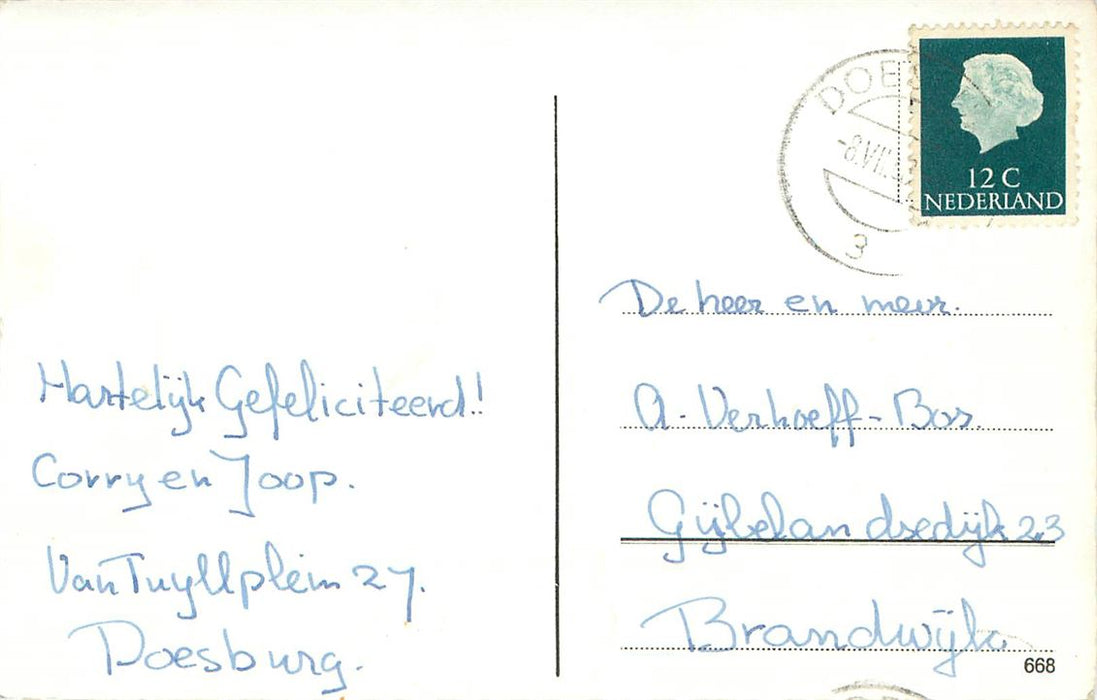 Hartelijk Gefeliciteerd!!
Corry en Joop.
Van Tuyllplein 27.
Doesburg.
DOE
-8.VII
3
12 C
NEDERLAND
De heer en mevr.
A. Verhoeff-Bos.
Gijbelandsedijk 23
Brandwijk
668